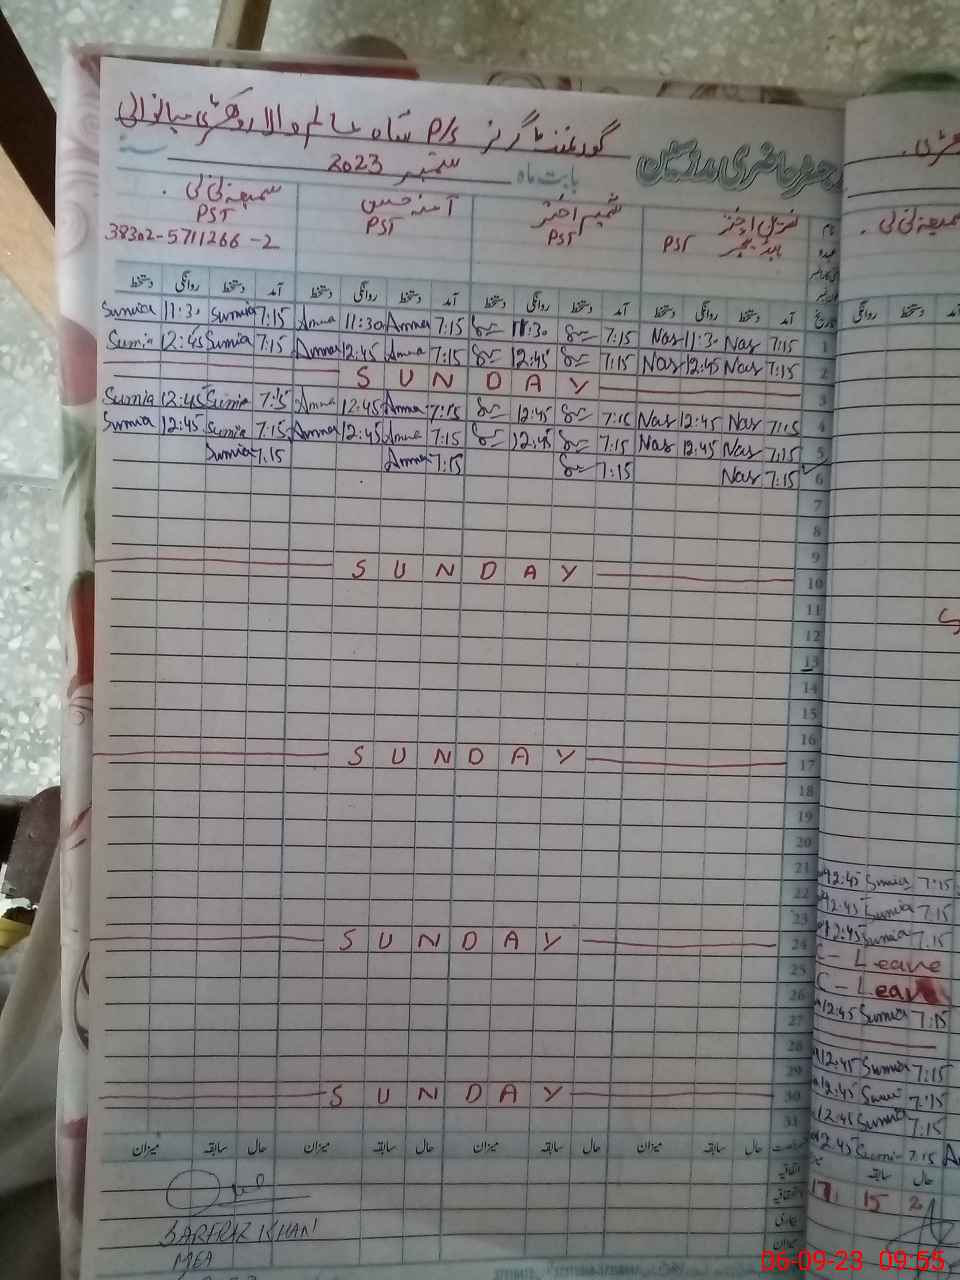 گورنمنٹ گرلز P/S شاہ عالم والا روکھڑی میانوالی
رجسٹر حاضری مدرسین
بابت ماہ ستمبر 2023 سنہ
نسرین اختر شمیم اختر آمنہ حسن سمیعہ بی بی
PST PST PST PST
38302-5711266-2
آمد دستخط روانگی دستخط آمد دستخط روانگی دستخط آمد دستخط روانگی دستخط آمد دستخط روانگی دستخط
Sumica 11:30 Sumia 7:15 Amna 11:30 Amna 7:15 11:30 7:15 Nas 11:30 Nas 7:15 1
Sumia 12:45 Sumia 7:15 Amna 12:45 Amna 7:15 12:45 7:15 Nas 12:45 Nas 7:15 2
SUNDAY 3
Sumia 12:45 Sumia 7:15 Amna 12:45 Amna 7:15 12:45 7:15 Nas 12:45 Nas 7:15 4
Sumia 12:45 Sumia 7:15 Amna 12:45 Amna 7:15 12:45 7:15 Nas 12:45 Nas 7:15 5
Sumia 7:15 Amna 7:15 7:15 Nas 7:15 6
7
8
9
SUNDAY 10
11
12
13
14
15
16
SUNDAY 17
18
19
20
21
22
23
SUNDAY 24
25
26
27
28
29
SUNDAY 30
31
حال سابقہ میزان حال سابقہ میزان حال سابقہ میزان حال سابقہ میزان
اتفاقیہ
بیماری
میزان
SARFRAZ KHAN
MEA
سمیعہ بی بی
روانگی دستخط
12:45 Sumia 7:15
12:45 Sumia 7:15
12:45 Sumia 7:15
C - Leave
C - Leave
12:45 Sumia 7:15
12:45 Sumia 7:15
12:45 Sumi 7:15
12:45 Sumia 7:15
12:45 Sumi 7:15
سابقہ حال
17 15 2
06-09-23 09:55